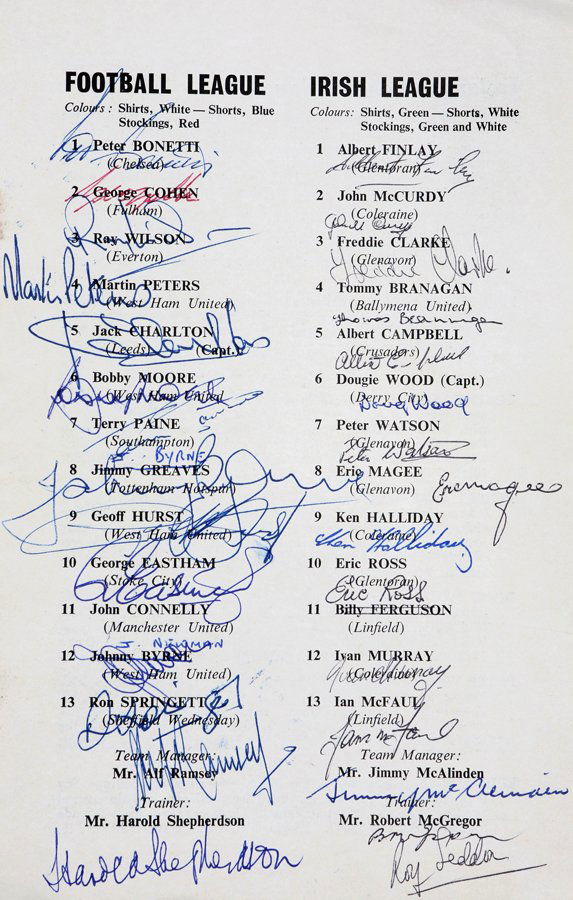 FOOTBALL LEAGUE
Colours: Shirts, White — Shorts, Blue
Stockings, Red
1 Peter BONETTI
(Chelsea)
2 George COHEN
(Fulham)
3 Ray WILSON
(Everton)
Martin Peters
4 Martin PETERS
(West Ham United)
5 Jack CHARLTON
(Leeds) (Capt.)
6 Bobby MOORE
(West Ham United)
7 Terry PAINE
(Southampton)
BYRNE
8 Jimmy GREAVES
(Tottenham Hotspur)
9 Geoff HURST
(West Ham United)
10 George EASTHAM
(Stoke City)
11 John CONNELLY
(Manchester United)
J. NEWMAN
12 Johnny BYRNE
(West Ham United)
13 Ron SPRINGETT
(Sheffield Wednesday)
Team Manager:
Mr. Alf Ramsey
Alf Ramsey
Trainer:
Mr. Harold Shepherdson
Harold Shepherdson
IRISH LEAGUE
Colours: Shirts, Green — Shorts, White
Stockings, Green and White
1 Albert FINLAY
(Glentoran)
Albert Finlay
2 John McCURDY
(Coleraine)
3 Freddie CLARKE
(Glenavon)
Freddie Clarke.
4 Tommy BRANAGAN
(Ballymena United)
Thomas Branagan
5 Albert CAMPBELL
(Crusaders)
6 Dougie WOOD (Capt.)
(Derry City)
Doug Wood
7 Peter WATSON
(Glenavon)
Peter Watson
8 Eric MAGEE
(Glenavon)
Eric Magee
9 Ken HALLIDAY
(Coleraine)
Ken Halliday
10 Eric ROSS
(Glentoran)
Eric Ross
11 Billy FERGUSON
(Linfield)
12 Ivan MURRAY
(Coleraine)
Ivan Murray
13 Ian McFAUL
(Linfield)
Team Manager:
Mr. Jimmy McAlinden
Jimmy McAlinden
Trainer:
Mr. Robert McGregor
Roy Seddon